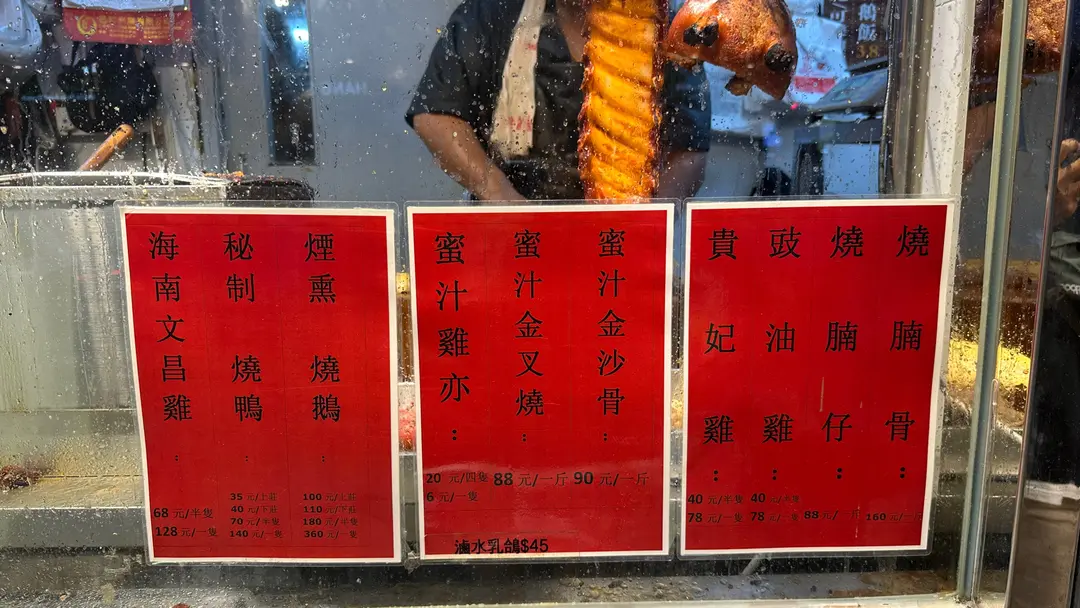 煙熏 燒鵝:
100 元/上莊
110 元/下莊
180 元/半隻
360 元/一隻
秘制 燒鴨:
35 元/上莊
40 元/下莊
70 元/半隻
140 元/一隻
海南文昌雞:
68 元/半隻
128 元/一隻
蜜汁金沙骨:
90 元/一斤
蜜汁金叉燒:
88 元/一斤
蜜汁雞亦:
20 元/四隻
6 元/一隻
滷水乳鴿$45
燒腩骨:
160 元/一斤
燒腩仔:
88 元/一斤
豉油雞:
40 元/半隻
78 元/一隻
貴妃雞:
40 元/半隻
78 元/一隻